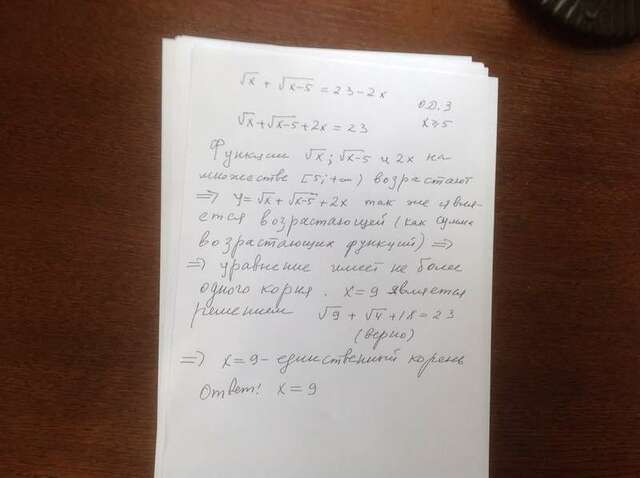 √x + √x-5 = 23-2x
О.Д.З
√x+√x-5+2x = 23
x≥5
Функции √x; √x-5 и 2x на
множестве [5;+∞) возрастают
=> y=√x+√x-5+2x так же явля-
ется возрастающей (как сумма
возрастающих функций) =>
=> уравнение имеет не более
одного корня. x=9 является
решением √9 + √4 +18 = 23
(верно)
=> x=9 - единственный корень
Ответ: x=9